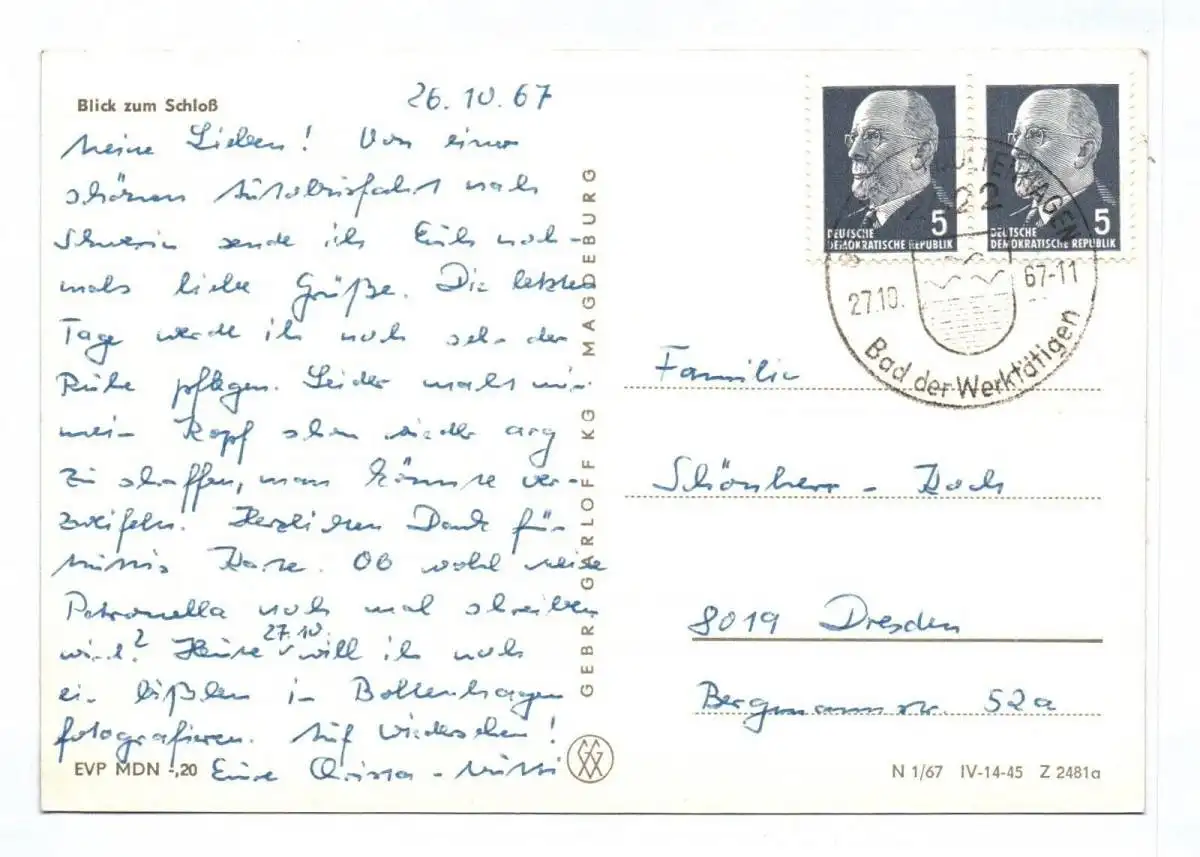 Blick zum Schloß
26.10.67
Meine Lieben! Von einer
schönen Autobusfahrt nach
Schwerin sende ich Euch noch-
mals liebe Grüße. Die letzten
Tage werde ich noch sehr der
Ruhe pflegen. Leider macht mir
mein Kopf schon wieder arg
zu schaffen, man könnte ver-
zweifeln. Herzlichen Dank für
Muttis Karte. Ob wohl meine
Petronella noch mal schreiben
wird? Heute 27.10 will ich noch
ein bißchen in Boltenhagen
fotografieren. Auf Wiedersehen!
Eure - Mutti
EVP MDN -,20
GEBR. GARLOFF KG MAGDEBURG
5
DEUTSCHE
DEMOKRATISCHE REPUBLIK
5
DEUTSCHE
DEMOKRATISCHE REPUBLIK
27.10. 67-11
Bad der Werktätigen
Familie
Schönherr - Koch
8019 Dresden
Bergmannstr. 52a
N 1/67 IV-14-45 Z 2481a